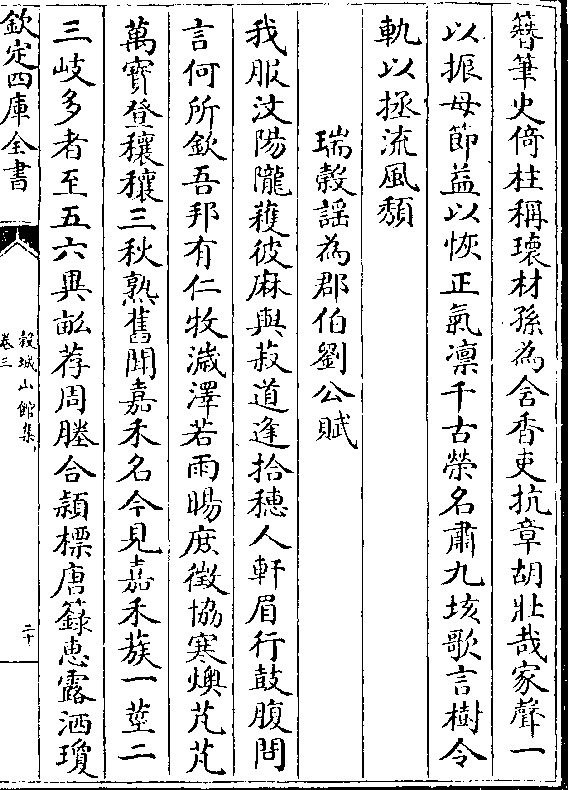 簪筆史倚柱稱瓌材孫為含香吏抗章胡壯哉家聲一
以振母節益以恢正氣凛千古榮名肅九垓歌言樹令
軌以拯流風頽
瑞穀謡為郡伯劉公賦
我服汶陽隴蓻彼麻與菽道逢拾穗人軒眉行鼓腹問
言何所欽吾邦有仁牧濊澤若雨暘庶徵協寒燠芃芃
萬寳登穰穰三秋熟舊聞嘉禾名今見嘉禾蔟一莖二
三岐多者至五六異畝荐周塍合穎標唐籙恵露洒瓊
欽定四庫全書
榖城山館集
卷三
二十